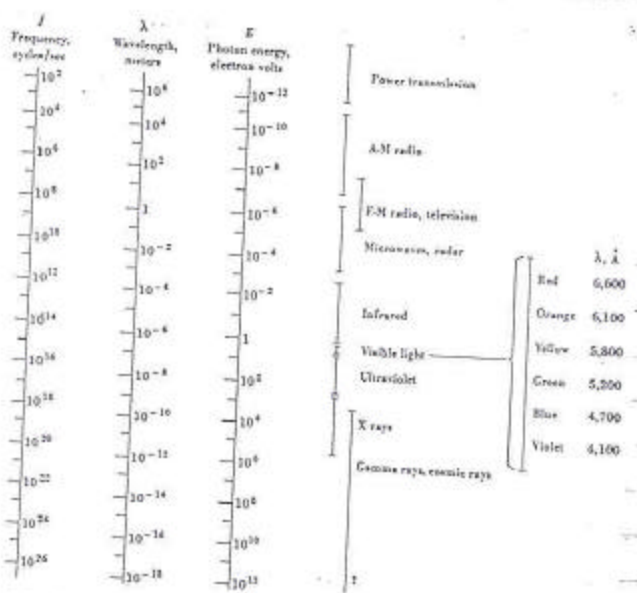 f
Frequency,
cycles/sec
10²
10⁴
10⁶
10⁸
10¹⁰
10¹²
10¹⁴
10¹⁶
10¹⁸
10²⁰
10²²
10²⁴
10²⁶
λ
Wavelength,
meters
10⁶
10⁴
10²
1
10⁻²
10⁻⁴
10⁻⁶
10⁻⁸
10⁻¹⁰
10⁻¹²
10⁻¹⁴
10⁻¹⁶
10⁻¹⁸
E
Photon energy,
electron volts
10⁻¹²
10⁻¹⁰
10⁻⁸
10⁻⁶
10⁻⁴
10⁻²
1
10²
10⁴
10⁶
10⁸
10¹⁰
10¹²
Power transmission
A-M radio
F-M radio, television
Microwaves, radar
Infrared
Visible light
Ultraviolet
X rays
Gamma rays, cosmic rays
?
λ, Å
Red 6,600
Orange 6,100
Yellow 5,800
Green 5,200
Blue 4,700
Violet 4,100